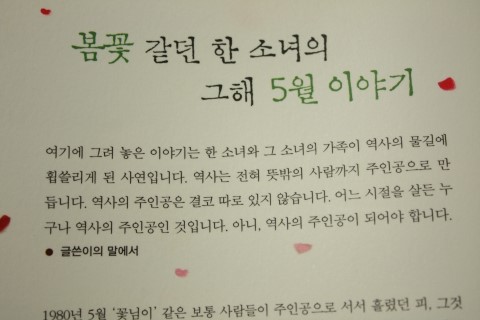 봄꽃 같던 한 소녀의
그해 5월 이야기
여기에 그려 놓은 이야기는 한 소녀와 그 소녀의 가족이 역사의 물길에
휩쓸리게 된 사연입니다. 역사는 전혀 뜻밖의 사람까지 주인공으로 만
듭니다. 역사의 주인공은 결코 따로 있지 않습니다. 어느 시절을 살든 누
구나 역사의 주인공인 것입니다. 아니, 역사의 주인공이 되어야 합니다.
● 글쓴이의 말에서
1980년 5월 ‘꽃님이’ 같은 보통 사람들이 주인공으로 서서 흘렸던 피, 그것